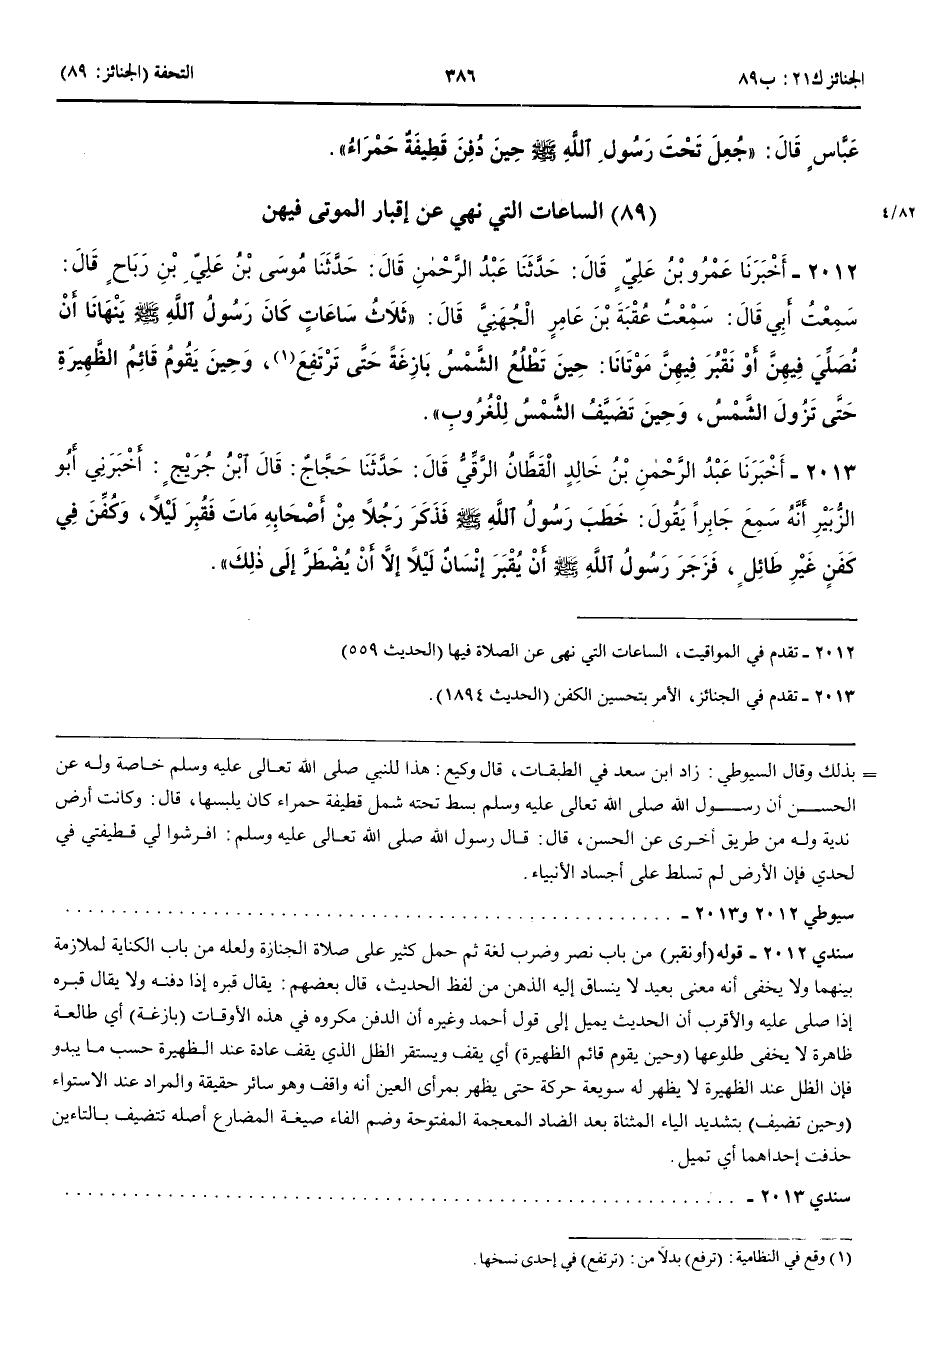 الجنائز ك٢١: ب٨٩
٣٨٦
التحفة (الجنائز: ٨٩)
عَبَّاسٍ قَالَ: «جُعِلَ تَحْتَ رَسُولِ ٱللَّهِ ﷺ حِينَ دُفِنَ قَطِيفَةٌ حَمْرَاءُ».
٤/٨٢
(٨٩) الساعات التي نهي عن إقبار الموتى فيهن
٢٠١٢ ـ أَخْبَرَنَا عَمْرُو بْنُ عَلِيٍّ قَالَ: حَدَّثَنَا عَبْدُ الرَّحْمٰنِ قَالَ: حَدَّثَنَا مُوسَى بْنُ عَلِيِّ بْنِ رَبَاحٍ قَالَ:
سَمِعْتُ أَبِي قَالَ: سَمِعْتُ عُقْبَةَ بْنَ عَامِرٍ الْجُهَنِيَّ قَالَ: «ثَلَاثُ سَاعَاتٍ كَانَ رَسُولُ ٱللَّهِ ﷺ يَنْهَانَا أَنْ
نُصَلِّيَ فِيهِنَّ أَوْ نَقْبُرَ فِيهِنَّ مَوْتَانَا: حِينَ تَطْلُعُ الشَّمْسُ بَازِغَةً حَتَّى تَرْتَفِعَ(١)، وَحِينَ يَقُومُ قَائِمُ الظَّهِيرَةِ
حَتَّى تَزُولَ الشَّمْسُ، وَحِينَ تَضَيَّفُ الشَّمْسُ لِلْغُرُوبِ».
٢٠١٣ ـ أَخْبَرَنَا عَبْدُ الرَّحْمٰنِ بْنُ خَالِدٍ الْقَطَّانُ الرَّقِّيُّ قَالَ: حَدَّثَنَا حَجَّاجٌ: قَالَ ٱبْنُ جُرَيْجٍ: أَخْبَرَنِي أَبُو
الزُّبَيْرِ أَنَّهُ سَمِعَ جَابِراً يَقُولُ: خَطَبَ رَسُولُ ٱللَّهِ ﷺ فَذَكَرَ رَجُلاً مِنْ أَصْحَابِهِ مَاتَ فَقُبِرَ لَيْلاً، وَكُفِّنَ فِي
كَفَنٍ غَيْرِ طَائِلٍ، فَزَجَرَ رَسُولُ ٱللَّهِ ﷺ أَنْ يُقْبَرَ إِنْسَانٌ لَيْلاً إِلَّا أَنْ يُضْطَرَّ إِلَى ذٰلِكَ».
٢٠١٢ ـ تقدم في المواقيت، الساعات التي نهى عن الصلاة فيها (الحديث ٥٥٩)
٢٠١٣ ـ تقدم في الجنائز، الأمر بتحسين الكفن (الحديث ١٨٩٤).
= بذلك وقال السيوطي: زاد ابن سعد في الطبقات، قال وكيع: هذا للنبي صلى الله تعالى عليه وسلم خاصة وله عن
الحسن أن رسول الله صلى الله تعالى عليه وسلم بسط تحته شمل قطيفة حمراء كان يلبسها، قال: وكانت أرض
ندية وله من طريق أخرى عن الحسن، قال: قال رسول الله صلى الله تعالى عليه وسلم: افرشوا لي قطيفتي في
لحدي فإن الأرض لم تسلط على أجساد الأنبياء.
سيوطي ٢٠١٢ و٢٠١٣ ـ ........................................
سندي ٢٠١٢ ـ قوله (أو نقبر) من باب نصر وضرب لغة ثم حمل كثير على صلاة الجنازة ولعله من باب الكناية لملازمة
بينهما ولا يخفى أنه معنى بعيد لا ينساق إليه الذهن من لفظ الحديث، قال بعضهم: يقال قبره إذا دفنه ولا يقال قبره
إذا صلى عليه والأقرب أن الحديث يميل إلى قول أحمد وغيره أن الدفن مكروه في هذه الأوقات (بازغة) أي طالعة
ظاهرة لا يخفى طلوعها (وحين يقوم قائم الظهيرة) أي يقف ويستقر الظل الذي يقف عادة عند الظهيرة حسب ما يبدو
فإن الظل عند الظهيرة لا يظهر له سويعة حركة حتى يظهر بمرأى العين أنه واقف وهو سائر حقيقة والمراد عند الاستواء
(وحين تضيف) بتشديد الياء المثناة بعد الضاد المعجمة المفتوحة وضم الفاء صيغة المضارع أصله تتضيف بالتاءين
حذفت إحداهما أي تميل.
سندي ٢٠١٣ ـ ........................................
(١) وقع في النظامية: (ترفع) بدلاً من: (ترتفع) في إحدى نسخها.